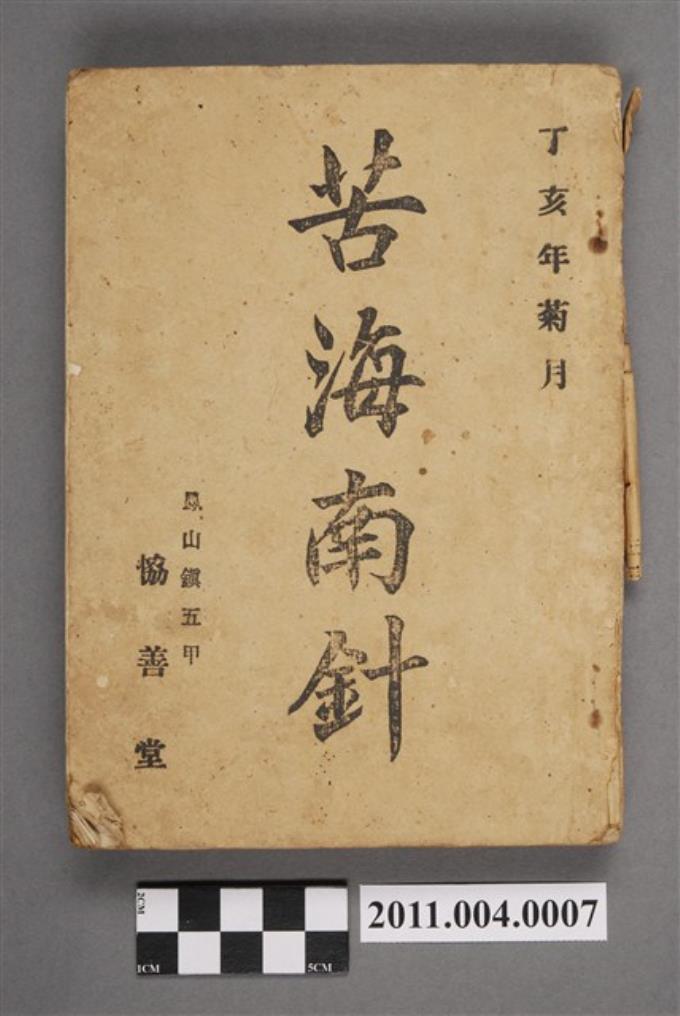 丁亥年菊月
苦海南針
鳳山鎮五甲
恊善堂
2CM
1CM
5CM
2011.004.0007